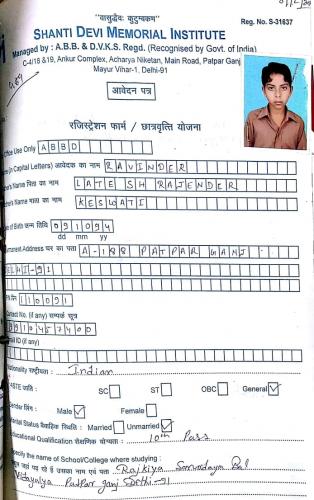 "वासुद्धैवः कुटुम्बकम"
Reg. No. S-31637
SHANTI DEVI MEMORIAL INSTITUTE
Managed by : A.B.B. & D.V.K.S. Regd. (Recognised by Govt. of India)
C-4/18 &19, Ankur Complex, Acharya Niketan, Main Road, Patpar Ganj
Mayur Vihar-1, Delhi-91
आवेदन पत्र
रजिस्ट्रेशन फार्म / छात्रवृत्ति योजना
Office Use Only ABBD
(in Capital Letters) आवेदक का नाम RAVINDER
Name पिता का नाम LATE SH RAJENDER
Name माता का नाम KESWATI
Date of Birth जन्म तिथि 091094
dd mm yy
Permanent Address घर का पता A-188 PATPAR GANJ
ELHI-91
110091
Contact No. (if any) सम्पर्क सूत्र
8910457400
ID (if any)
Nationality राष्ट्रीयता : Indian
जाति : SC ST OBC General ✓
लिंग : Male ✓ Female
Marital Status वैवाहिक स्थिति : Married Unmarried ✓
Educational Qualification शैक्षणिक योग्यता : 10th Pass
specify the name of School/College where studying :
जहां पढ़ रहे है उसका नाम एवं पता Rajkiya Sarvodaya Bal
Vidyalya Patpar ganj Delhi-91